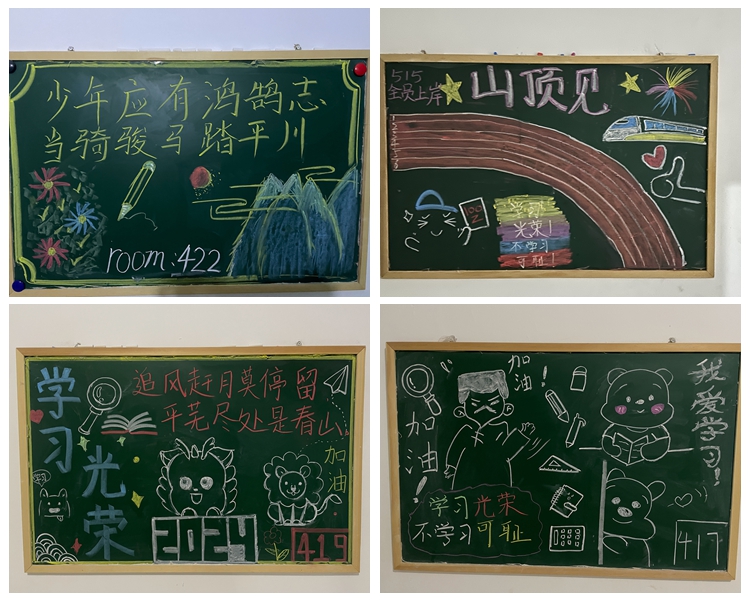 少年应有鸿鹄志
当骑骏马踏平川
room:422
515
全员上岸
山顶见
100
学习
光荣!
不学习
可耻!
学习
光荣
追风赶月莫停留
平芜尽处是春山
加油
2024
419
加油!
我爱学习!
加油
学习光荣
不学习可耻
417